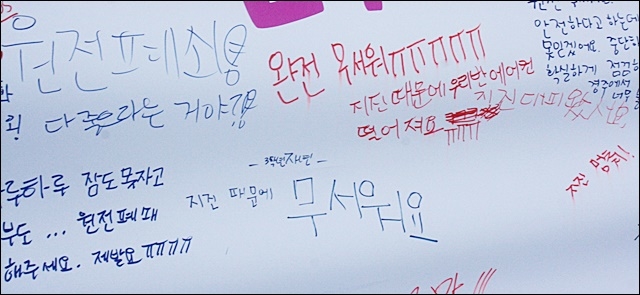 원전폐쇄
다 죽으라는 거야?
완전 무서워ㅠㅠㅠㅠㅠ
지진때문에 우리반에어컨
떨어져요
ㅠㅠㅠ
안전하다고 하는데
못믿겠어요. 중단하
확실하게 점검하
경주에서
너무
지진 멈춰!
루하루 잠도 못자고
부도 ... 원전폐쇄
해주세요. 제발요ㅠㅠㅠㅠ
지진 때문에
무서워요